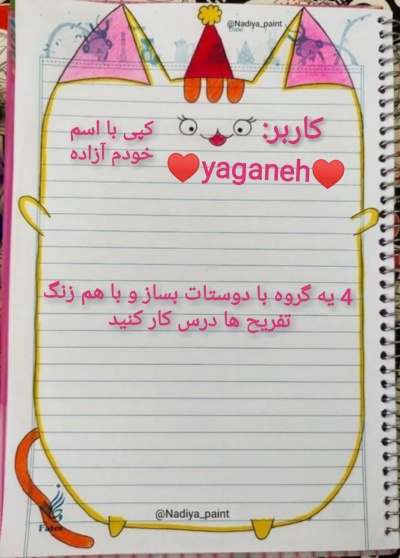 @Nadiya_paint
Date
کاربر:
♥yaganeh♥
کپی با اسم
خودم آزاده
4 یه گروه با دوستات بساز و با هم زنگ
تفریح ها درس کار کنید
@Nadiya_paint
Fater